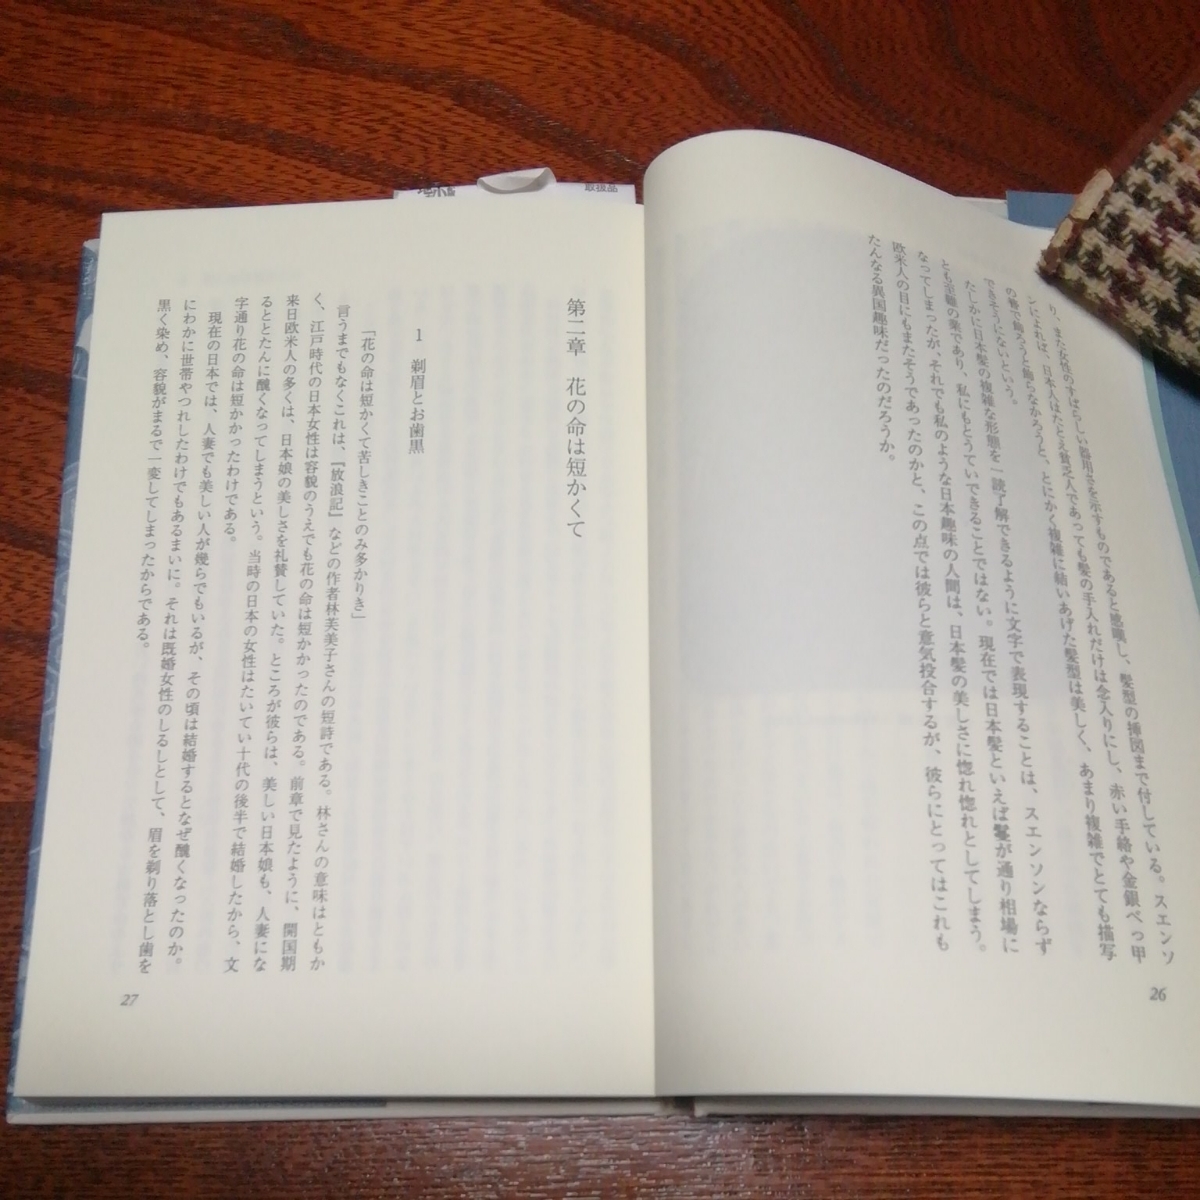 り、また女性のすばらしい器用さを示すものであると感嘆し、髪型の挿図まで付している。スエンソ
ンによれば、日本人はたとえ貧乏人であっても髪の手入れだけは念入りにし、赤い手絡や金銀べっ甲
の簪で飾ろうと飾らなかろうと、とにかく複雑に結いあげた髪型は美しく、あまり複雑でとても描写
できそうにないという。
たしかに日本髪の複雑な形態を一読了解できるように文字で表現することは、スエンソンならず
とも至難の業であり、私にもとうていできることではない。現在では日本髪といえば鬘が通り相場に
なってしまったが、それでも私のような日本趣味の人間は、日本髪の美しさに惚れ惚れとしてしまう。
欧米人の目にもまたそうであったのかと、この点では彼らと意気投合するが、彼らにとってはこれも
たんなる異国趣味だったのだろうか。
26
第二章 花の命は短かくて
1 剃眉とお歯黒
「花の命は短かくて苦しきことのみ多かりき」
言うまでもなくこれは、『放浪記』などの作者林芙美子さんの短詩である。林さんの意味はともか
く、江戸時代の日本女性は容貌のうえでも花の命は短かかったのである。前章で見たように、開国期
来日欧米人の多くは、日本娘の美しさを礼賛していた。ところが彼らは、美しい日本娘も、人妻にな
るととたんに醜くなってしまうという。当時の日本の女性はたいてい十代の後半で結婚したから、文
字通り花の命は短かかったわけである。
現在の日本では、人妻でも美しい人が幾らでもいるが、その頃は結婚するとなぜ醜くなったのか。
にわかに世帯やつれしたわけでもあるまいに。それは既婚女性のしるしとして、眉を剃り落とし歯を
黒く染め、容貌がまるで一変してしまったからである。
27
取扱品